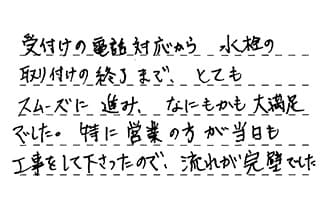 受付けの電話対応から 水栓の
取り付けの終了まで、とても
スムーズに 進み、なにもかも大満足
でした。特に営業の方が当日も
工事をして下さったので、流れが完璧でした